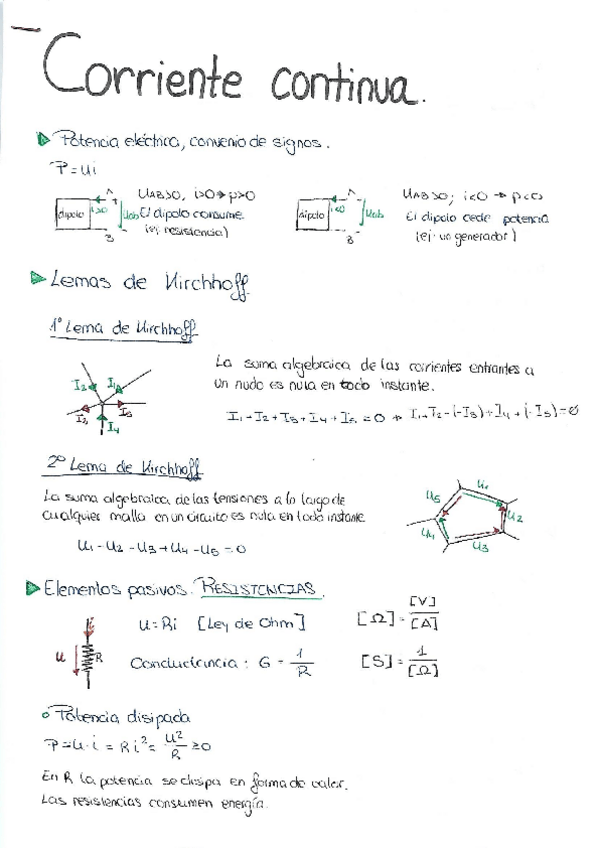 Corriente continua.
Potencia eléctrica, convenio de signos.
P = ui
dipolo
A
i>0
Uab
B
UAB>0, i>0 → p>0
El dipolo consume.
(ej: resistencia)
dipolo
A
i<0
Uab
B
UAB>0; i<0 → p<0
El dipolo cede potencia
(ej: un generador)
Lemas de Kirchhoff
1º Lema de Kirchhoff
La suma algebraica de las corrientes entrantes a
un nudo es nula en todo instante.
I2
I1
I3
I4
2º Lema de Kirchhoff
La suma algebraica de las tensiones a lo largo de
cualquier malla en un circuito es nula en todo instante
U1 - U2 - U3 + U4 - U5 = 0
U1
U5
U2
U4
U3
Elementos pasivos. RESISTENCIAS.
u
R
U = Ri [Ley de Ohm]
[Ω] = [V]/[A]
Conductancia: G = 1/R
[S] = 1/[Ω]
Potencia disipada
P = u·i = Ri² = u²/R ≥0
En R la potencia se disipa en forma de calor.
Las resistencias consumen energía.